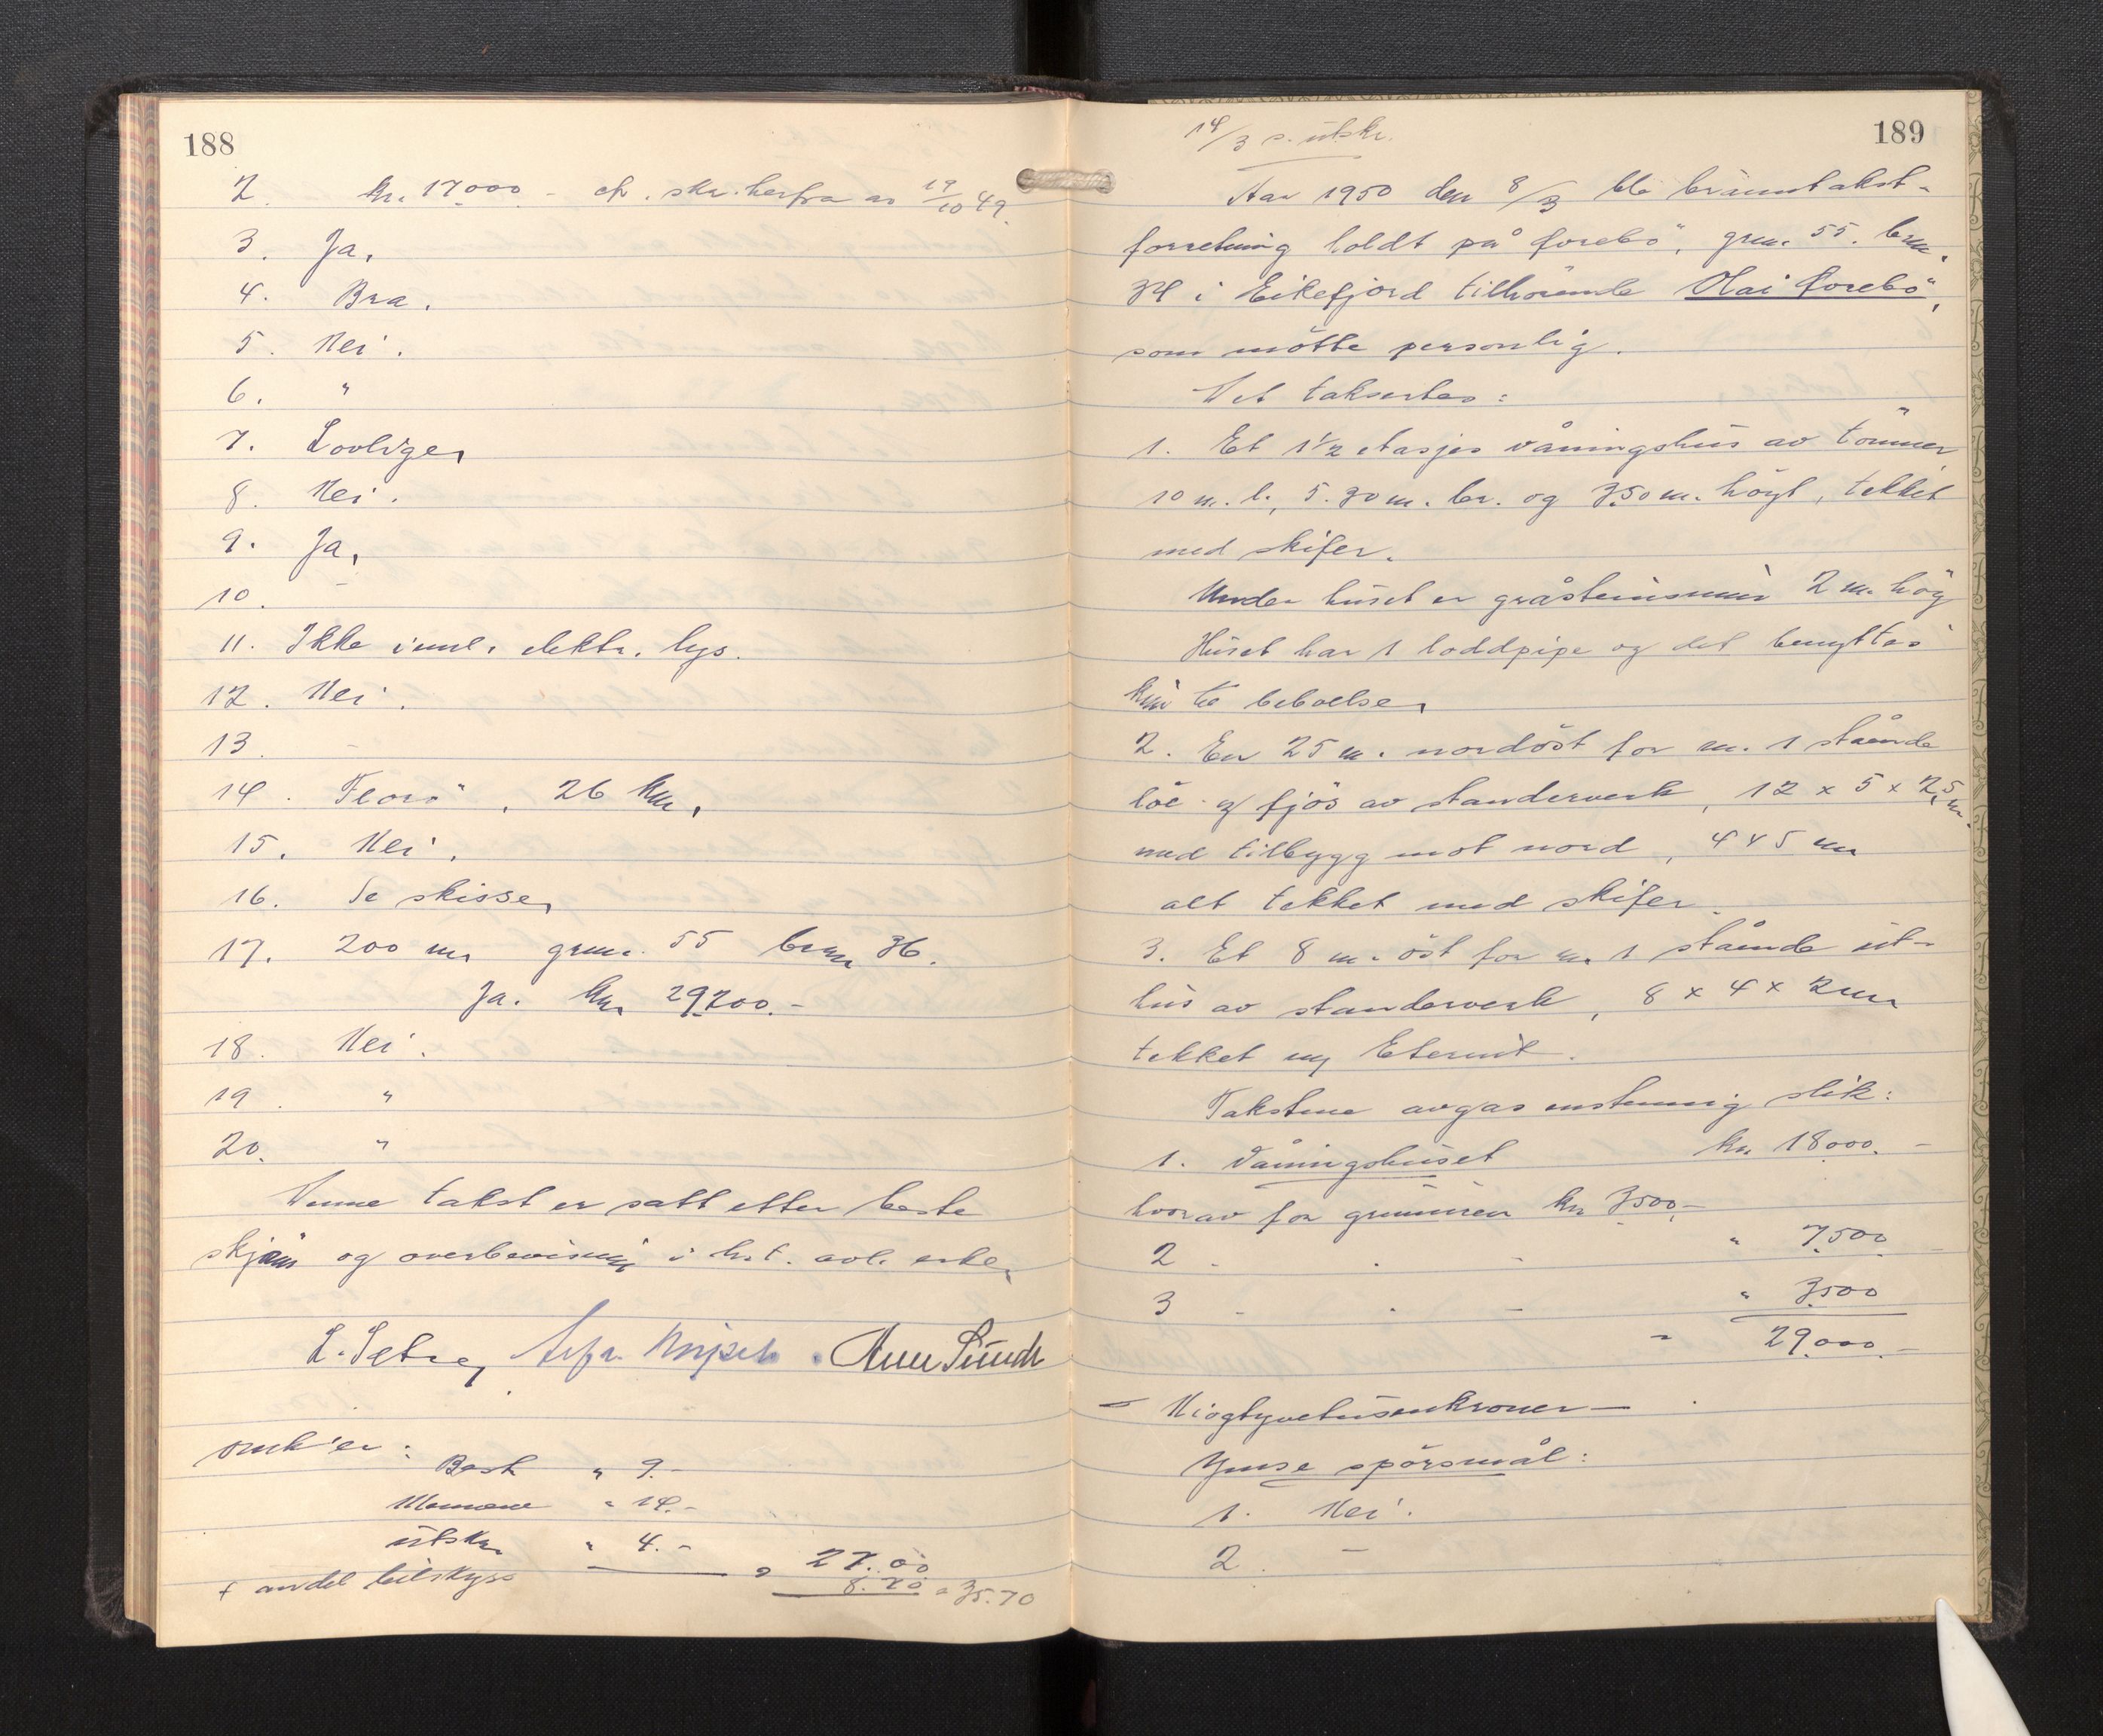 188
2. kr. 17000.- ifr. skr. herfra av 19/10 49.
3. Ja.
4. Bra.
5. Nei.
6. "
7. Lovlige.
8. Nei.
9. Ja.
10. -
11. Ikke innl. elektr. lys.
12. Nei.
13. -
14. Florö, 26 km.
15. Nei.
16. Se skisse.
17. 200 m. gnr. 55 brnr. 36.
Ja. kr. 29200.-
18. Nei.
19. "
20. "
Denne takst er satt etter beste
skjönn og overbevisning i h.t. avl. ed.
L. Setre, Sunde
omk'er:
Best. " 9.-
Mennene " 14.-
utskr. " 4.- = 27.00
+ andel bilskyss 8.70 = 35.70
189
14/3 s. utskr.
Aar 1950 den 8/3 ble branntakst-
forretning holdt på Forebö, gnr. 55. brnr.
34 i Eikefjord tilhörende Olai Forebö,
som mötte personlig.
Det taksertes:
1. Et 1 1/2 etasjes våningshus av tömmer
10 m. l., 5.30 m. br. og 3.50 m. höyt, tekket
med skifer.
Under huset er gråsteinsmur 2 m. höy
Huset har 1 loddpipe og det benyttes
kun til beboelse.
2. En 25 m. nordöst for nr. 1 stående
löe og fjös av standerverk, 12 x 5 x 2,5 m.
med tilbygg mot nord, 4 x 5 m
alt tekket med skifer.
3. Et 8 m. öst for nr. 1 stående ut-
hus av standerverk, 8 x 4 x 2 m
tekket m/ Eternit.
Takstene avgas enstemmig slik:
1. Våningshuset kr. 18000.-
hvorav for grunnmur kr 3500.-
2 - " 7500.-
3 - " 3500
- 29.000.-
- Niogtyvetusenkroner -
Ymse spörsmål:
1. Nei.
2. -